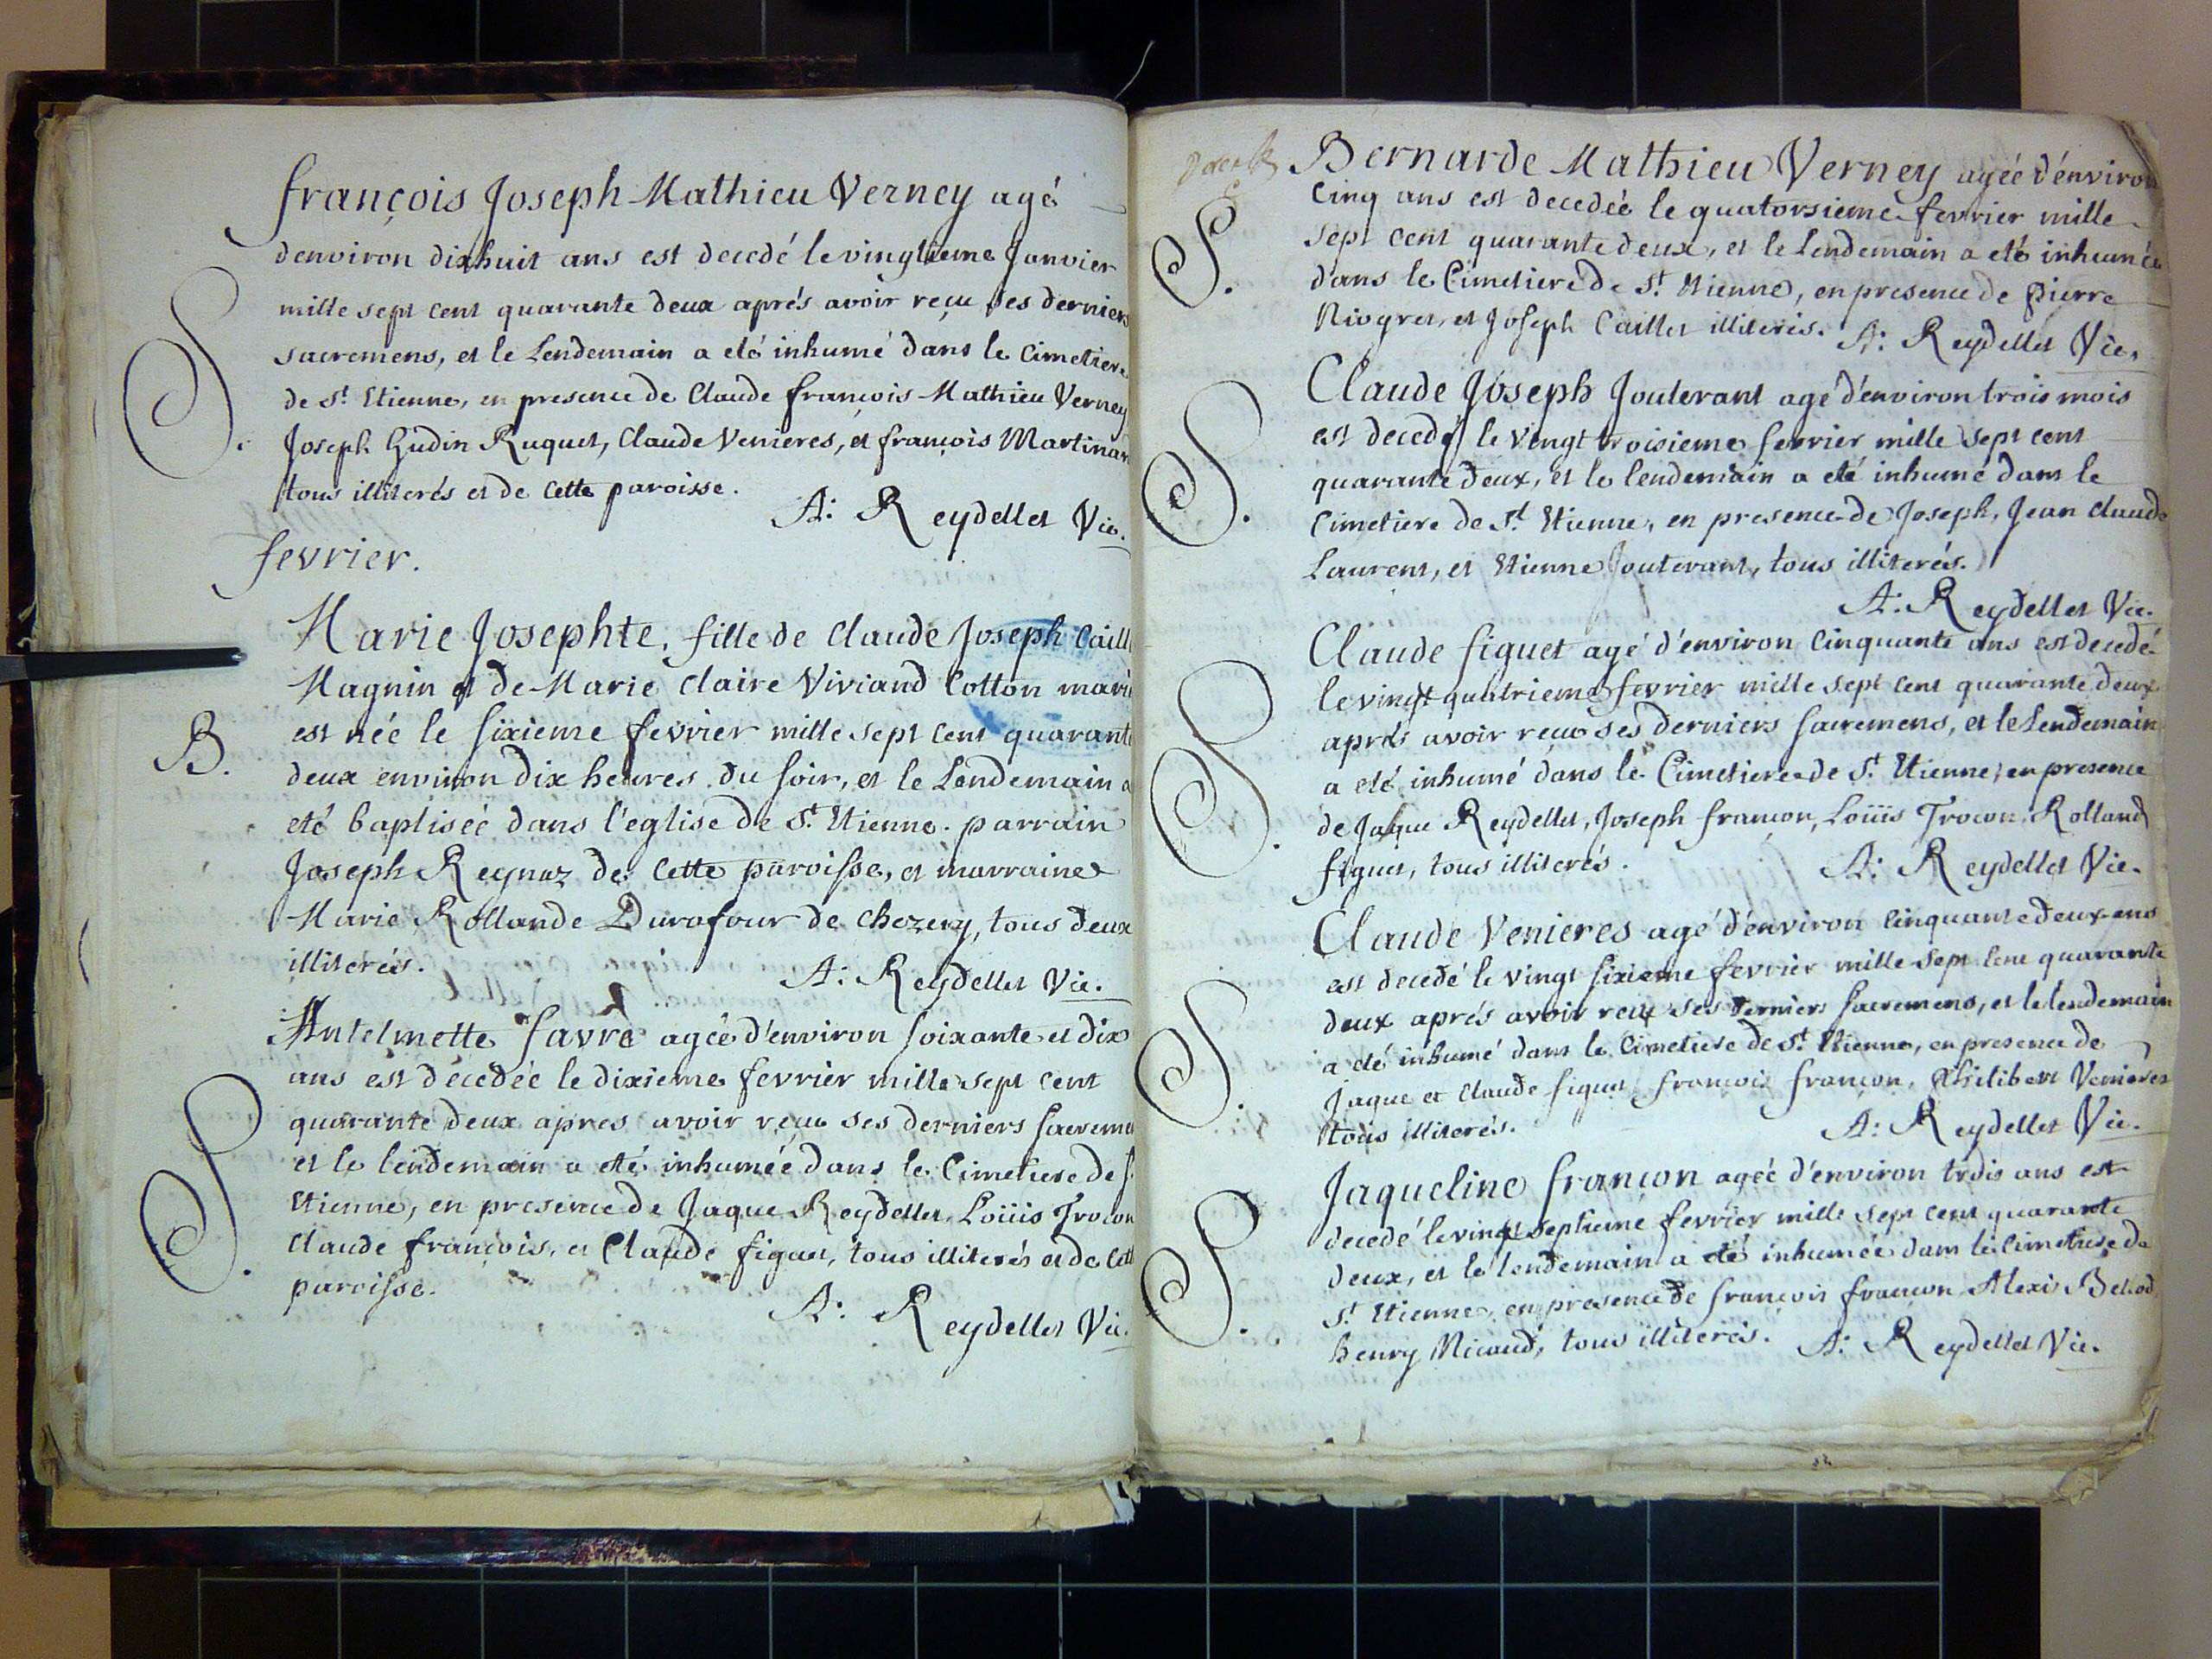 françois Joseph Mathieu Verney agé
denviron dixhuit ans est decedé le vingtieme Janvier
mille sept cent quarante deux aprés avoir reçu ses derniers
sacremens, et le Lendemain a eté inhumé dans le Cimetiere
de St. Etienne, en presence de Claude françois Mathieu Verney
S. Joseph Gudin Ruquet, Claude Venieres, et françois Martinan
tous illiterés et de Cette paroisse.
A: Reydellet Vic.
fevrier.
Marie Josephte, fille de Claude Joseph Caill
Magnin et de Marie Claire Viviand Cotton marié
est née le sixieme fevrier mille sept cent quarante
B. deux environ dix heures du soir, et le Lendemain a
eté baptisée dans l'eglise de St. Etienne. parrain
Joseph Reynaz de Cette paroisse, et marraine
Marie Rollande Durafour de Chezery, tous deux
illiterés.
A: Reydellet Vic.
Antelmette favre agée d'environ soixante et dix
ans est decedée le dixieme fevrier mille sept cent
quarante deux apres avoir reçu ses derniers sacreme
et le lendemain a eté inhumée dans le Cimetiere de S.
Etienne, en presence de Jaque Reydellet, Loüis Trocon
S. Claude françois, et Claude figuet, tous illiterés et de Cett
paroisse.
A: Reydellet Vic.
Bernarde Mathieu Verney agée d'environ
Cinq ans est decedée le quatorsieme fevrier mille
S. sept cent quarante deux, et le Lendemain a eté inhumée
dans le Cimetiere de St. Etienne, en presence de pierre
et Joseph Caillet illiterés. A: Reydellet Vic.
Claude Joseph Jouterant agé d'environ trois mois
est decedé le vingt troisieme fevrier mille sept cent
quarante deux, et le lendemain a eté inhumé dans le
S. Cimetiere de St. Etienne, en presence de Joseph, Jean Claude
Laurent, et Etienne Jouterant, tous illiterés.
A: Reydellet Vic.
Claude figuet agé d'environ Cinquante ans est decedé
le vingt quatrieme fevrier mille sept cent quarante deux
aprés avoir reçu ses derniers sacremens, et le Lendemain
a eté inhumé dans le Cimetiere de St. Etienne, en presence
S. de Jaque Reydellet, Joseph françon, Loüis Trocon, Rolland
figuet, tous illiterés. A: Reydellet Vic.
Claude Venieres agé d'environ Cinquante deux ans
est decedé le vingt sixieme fevrier mille sept cent quarante
deux aprés avoir reçu ses derniers sacremens, et le lendemain
a eté inhumé dans le Cimetiere de St. Etienne, en presence de
S. Jaque et Claude figuet, françois françon, Philibert Venieres
tous illiterés. A: Reydellet Vic.
Jaqueline françon agée d'environ trois ans est
decedé le vingt septieme fevrier mille sept cent quarante
deux, et le lendemain a eté inhumée dans le Cimetiere de
S. St. Etienne, en presence de françois françon, Alexis Belod
henry Nicoud, tous illiterés. A: Reydellet Vic.